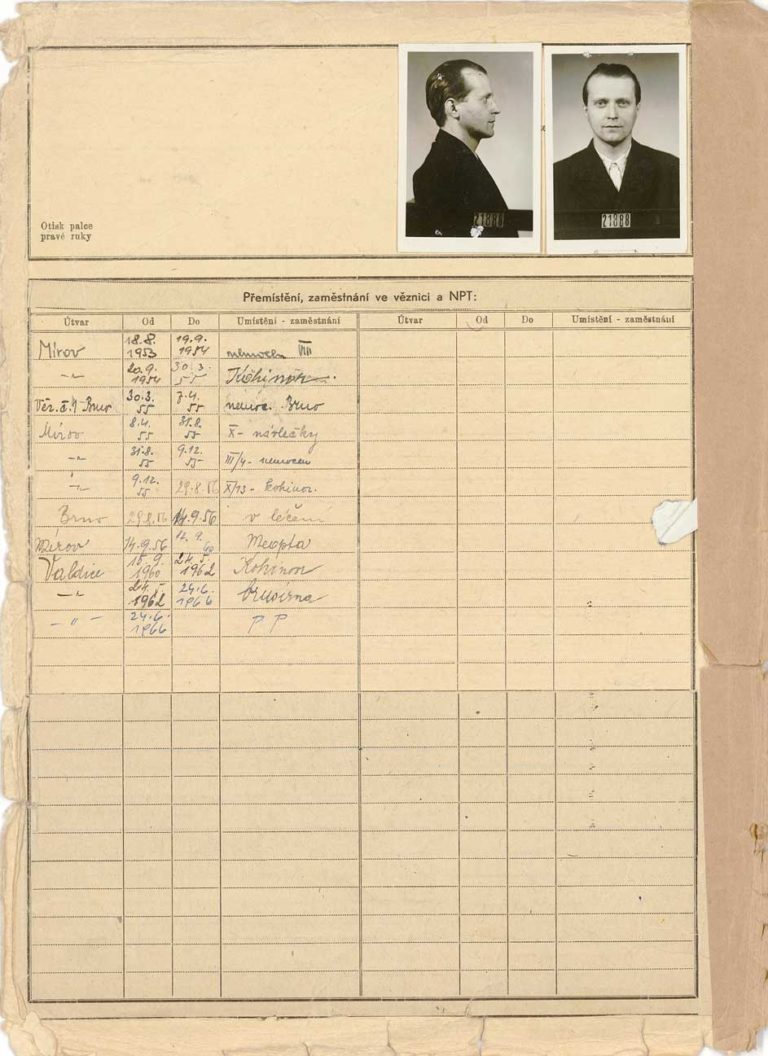 21888
21888
Otisk palce
pravé ruky
Přemístění, zaměstnání ve věznici a NPT:
Útvar Od Do Umístění - zaměstnání Útvar Od Do Umístění - zaměstnání
Mírov 18.8. 1953 19.9. 1954 nemocn VIII
-„- 20.9. 1954 30.3. 55 Kohinor
Věz. č.1 Brno 30.3. 55 7.4. 55 nemoc. Brno
Mírov 8.4. 55 31.8. 55 X - návlečky
-„- 31.8. 55 9.12. 55 III/4 - nemocn
-„- 9.12. 55 29.8.56 X/13 - kohinor.
Brno 29.8.56 14.9.56 v léčení
Mírov 14.9.56 Meopta
Valdice 15.9. 1960 24.5. 1962 Kohinor
-„- 24.5. 1962 24.6. 1966 brusírna
-„- 24.6. 1966 PP